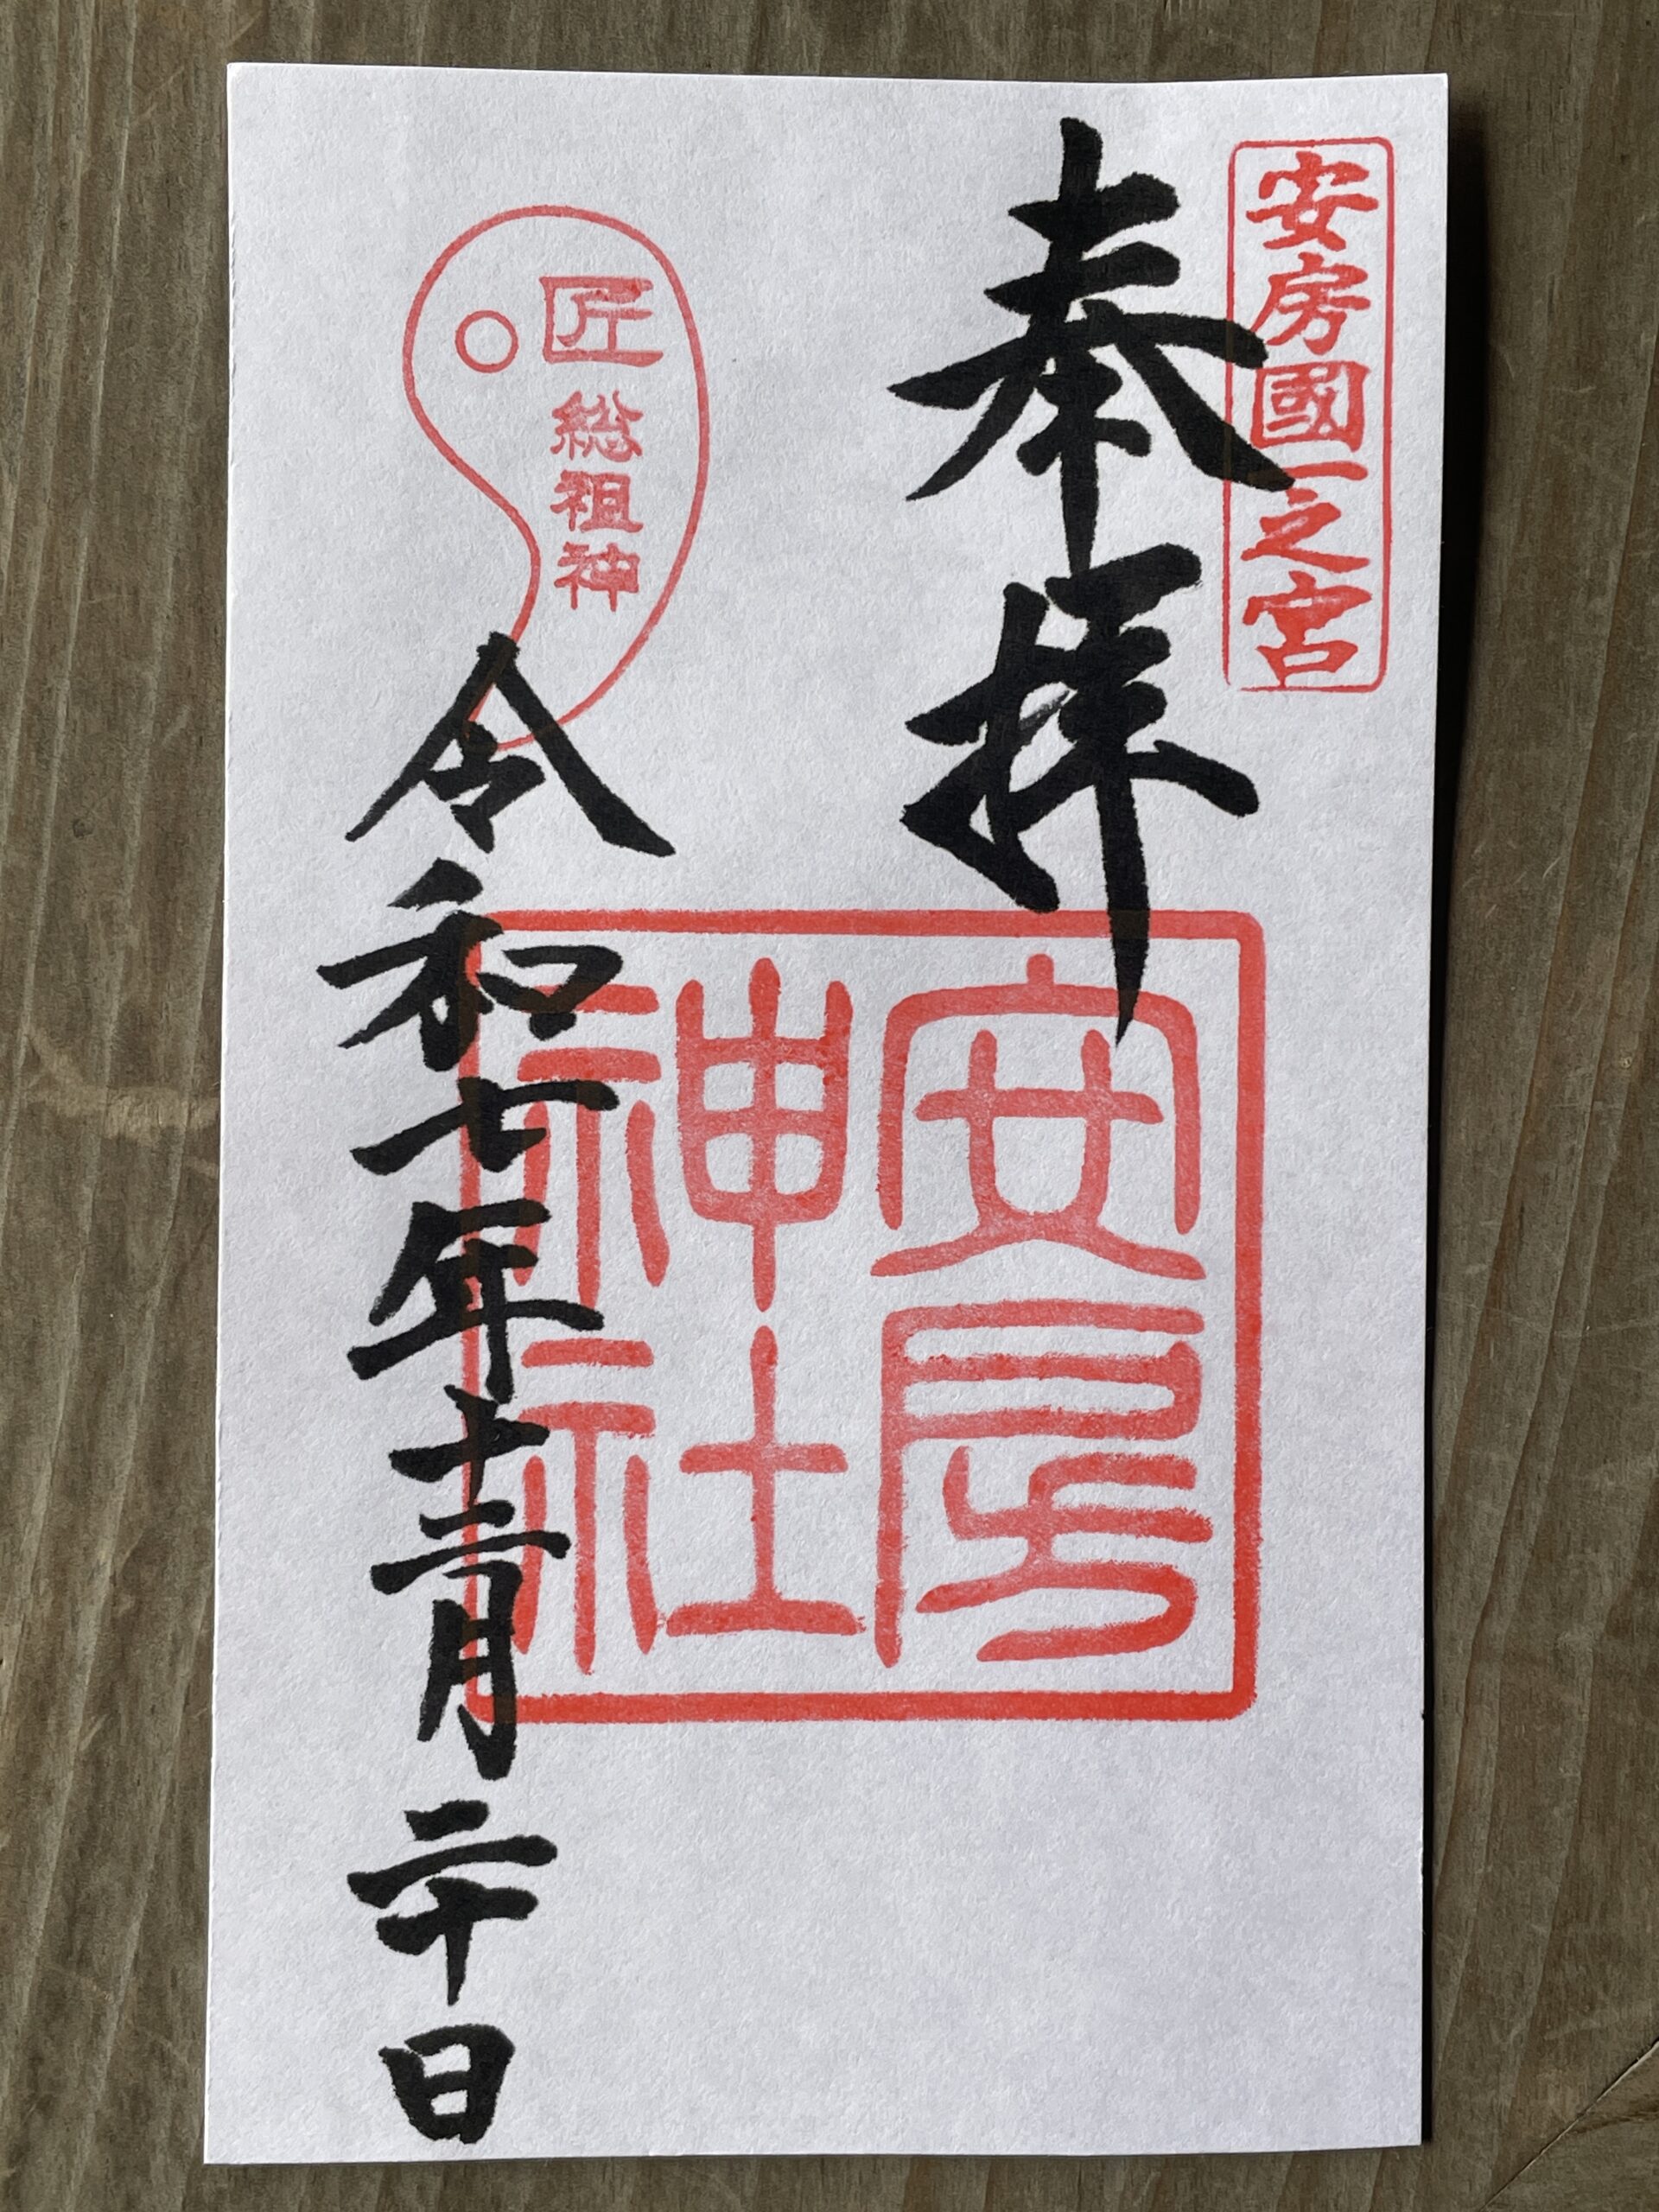 安房國一之宮
奉拝
安房
神社
匠総祖神
令和七年十二月二十日